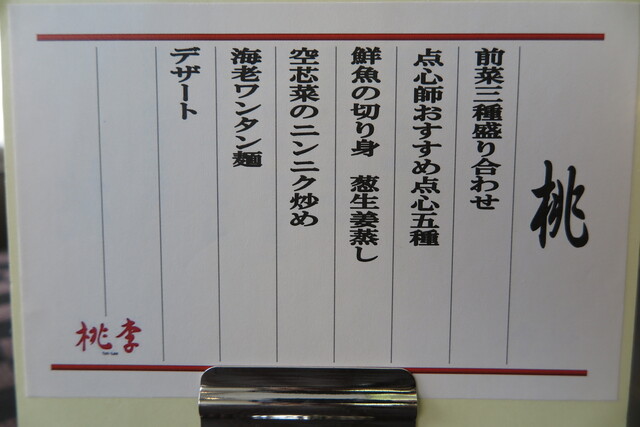 桃
前菜三種盛り合わせ
点心師おすすめ点心五種
鮮魚の切り身　葱生姜蒸し
空芯菜のニンニク炒め
海老ワンタン麺
デザート
桃李